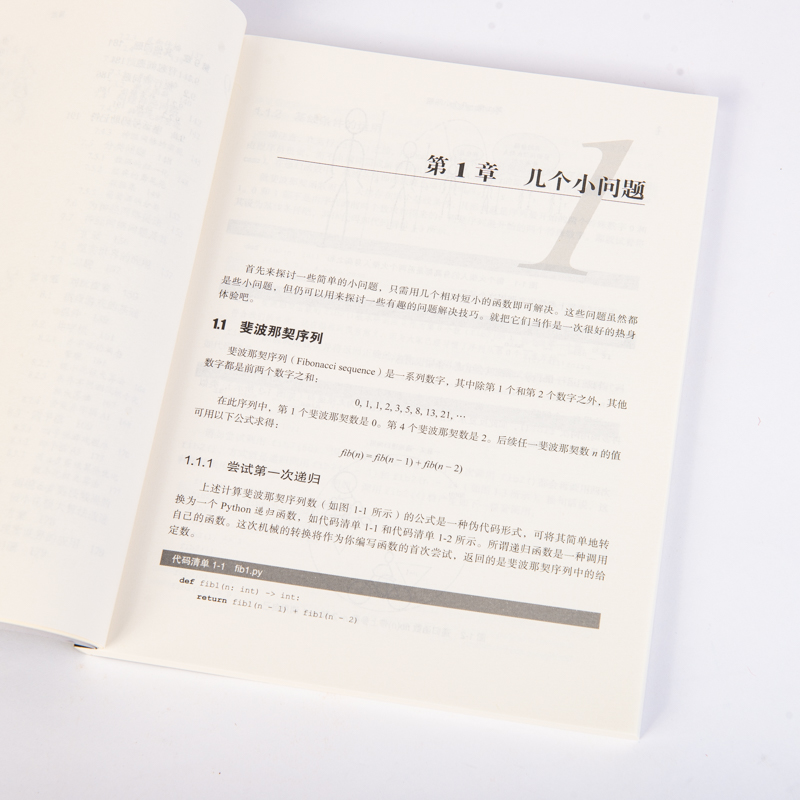 第 1 章 几个小问题
1
首先来探讨一些简单的小问题，只需用几个相对短小的函数即可解决。这些问题虽然都
是些小问题，但仍可以用来探讨一些有趣的问题解决技巧。就把它们当作是一次很好的热身
体验吧。
1.1 斐波那契序列
斐波那契序列（Fibonacci sequence）是一系列数字，其中除第 1 个和第 2 个数字之外，其他
数字都是前两个数字之和：
0, 1, 1, 2, 3, 5, 8, 13, 21, …
在此序列中，第 1 个斐波那契数是 0。第 4 个斐波那契数是 2。后续任一斐波那契数 n 的值
可用以下公式求得：
fib(n) = fib(n − 1) + fib(n − 2)
1.1.1 尝试第一次递归
上述计算斐波那契序列数（如图 1-1 所示）的公式是一种伪代码形式，可将其简单地转
换为一个 Python 递归函数，如代码清单 1-1 和代码清单 1-2 所示。所谓递归函数是一种调用
自己的函数。这次机械的转换将作为你编写函数的首次尝试，返回的是斐波那契序列中的给
定数。
代码清单 1-1 fib1.py
def fib1(n: int) -> int:
return fib1(n - 1) + fib1(n - 2)